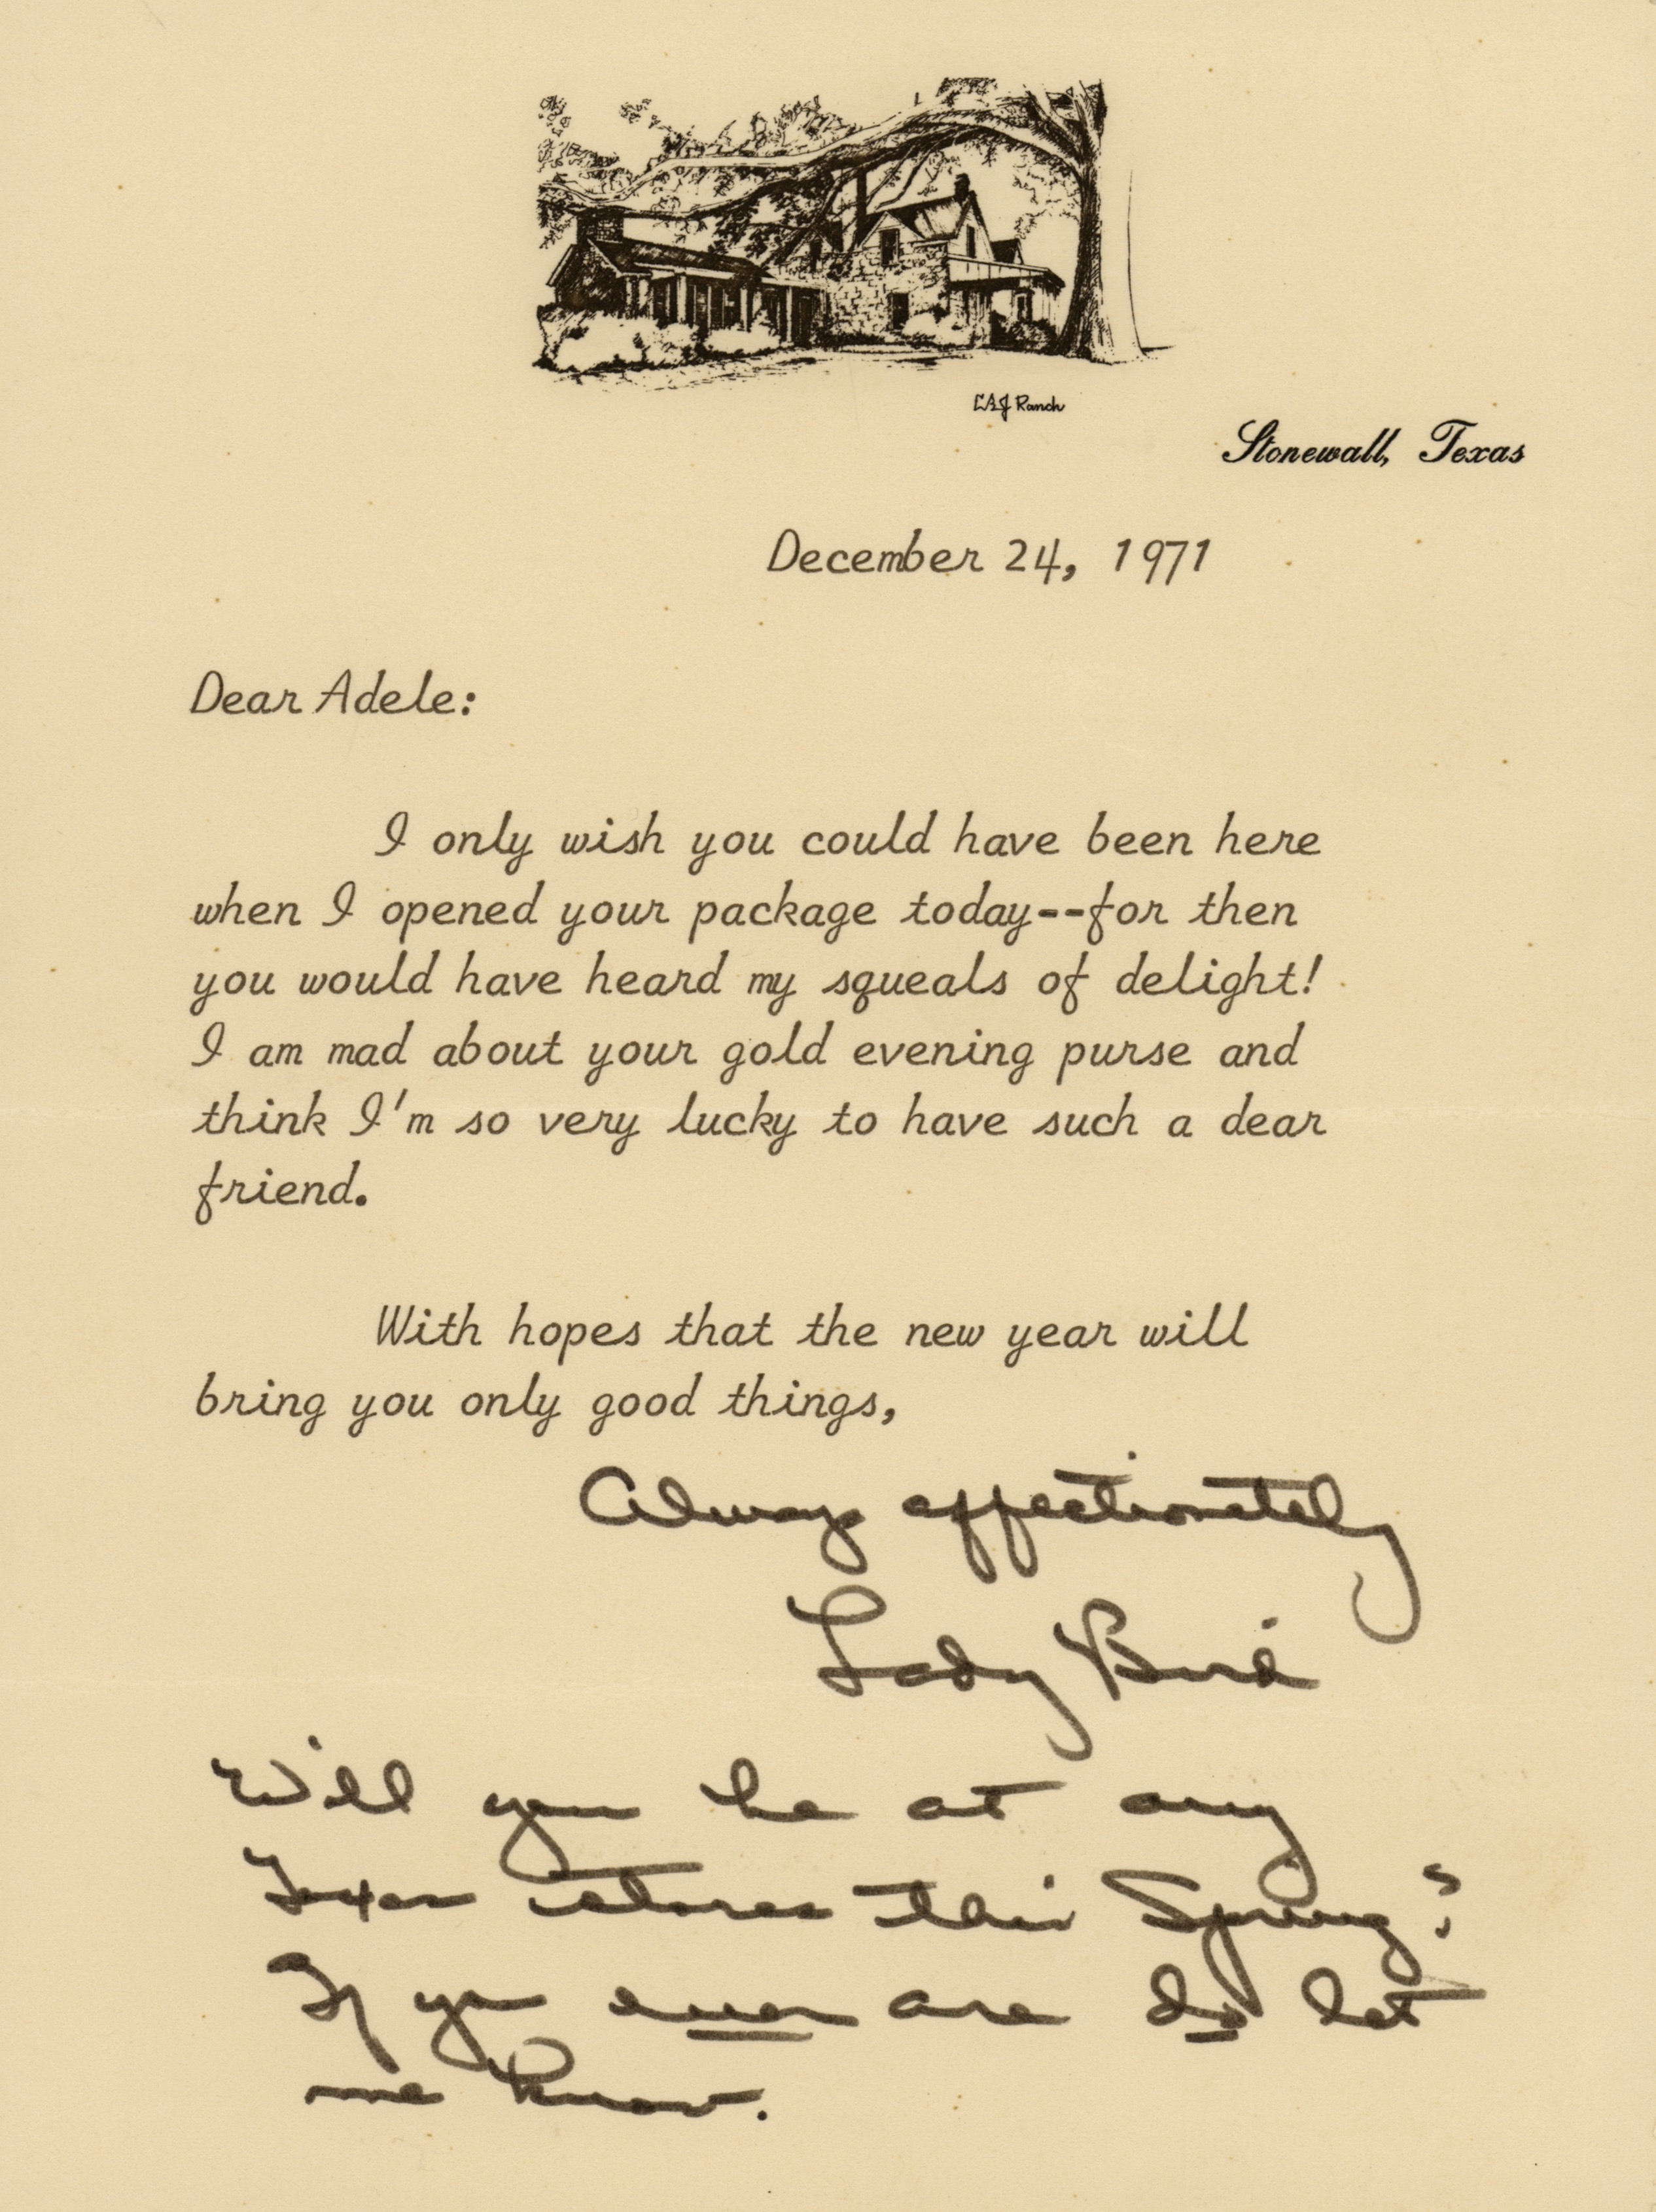 LBJ Ranch
Stonewall, Texas
December 24, 1971
Dear Adele:
I only wish you could have been here
when I opened your package today--for then
you would have heard my squeals of delight!
I am mad about your gold evening purse and
think I'm so very lucky to have such a dear
friend.
With hopes that the new year will
bring you only good things,
Always affectionately
Lady Bird
Will you be at any
Texas stores this Spring?
If you ever are do let
me know.